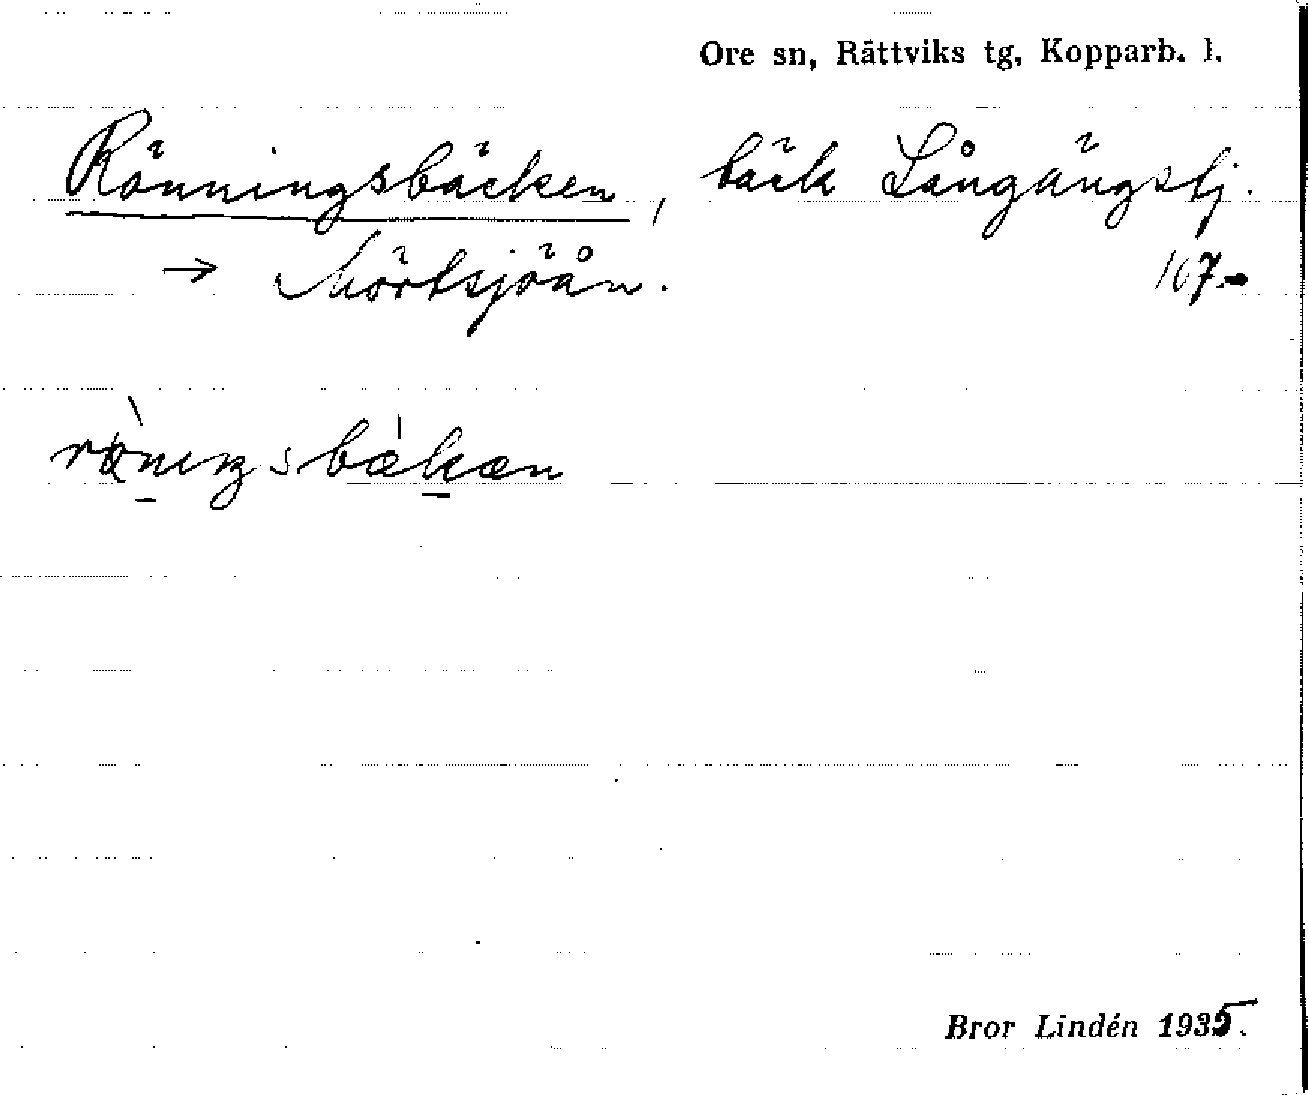 Ore sn, Rättviks tg, Kopparb. l.
Rönningsbäcken, bäck Långängstj.
→ Mörtsjöån. 167.-
Bror Lindén 1935.